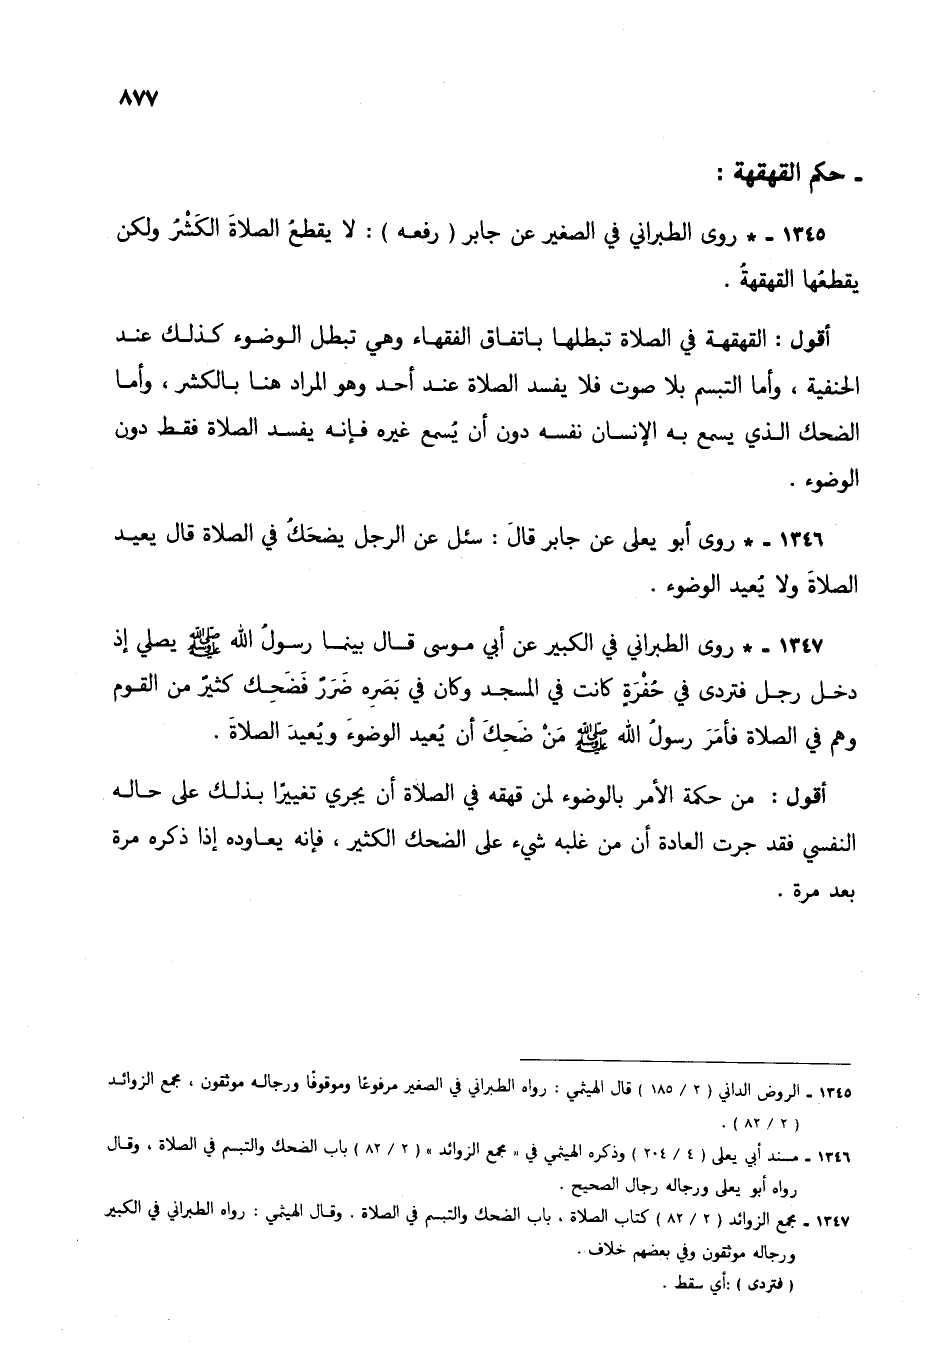 ٨٧٧
ـ حكم القهقهة :
١٣٤٥ ـ * روى الطبراني في الصغير عن جابر ( رفعه ) : لا يقطعُ الصلاةَ الكَشْرُ ولكن
يقطعُها القهقهةُ .
أقول : القهقهة في الصلاة تبطلها باتفاق الفقهاء وهي تبطل الوضوء كذلك عند
الحنفية ، وأما التبسم بلا صوت فلا يفسد الصلاة عند أحد وهو المراد هنا بالكشر ، وأما
الضحك الذي يسمع به الإنسان نفسه دون أن يُسمع غيره فإنه يفسد الصلاة فقط دون
الوضوء .
١٣٤٦ ـ * روى أبو يعلى عن جابر قالَ : سئل عن الرجل يضحَكُ في الصلاة قال يعيد
الصلاةَ ولا يُعيد الوضوء .
١٣٤٧ ـ * روى الطبراني في الكبير عن أبي موسى قال بينما رسولُ الله ﷺ يصلي إذ
دخل رجل فتردى في حُفْرَةٍ كانت في المسجد وكان في بَصَرِه ضَرَرٌ فَضَحِك كثيرٌ من القوم
وهم في الصلاة فأمَرَ رسولُ الله ﷺ مَنْ ضَحِكَ أن يُعيد الوضوءَ ويُعيدَ الصلاةَ .
أقول : من حكمة الأمر بالوضوء لمن قهقه في الصلاة أن يجري تغييرًا بذلك على حاله
النفسي فقد جرت العادة أن من غلبه شيء على الضحك الكثير ، فإنه يعاوده إذا ذكره مرة
بعد مرة .
١٣٤٥ ـ الروض الداني ( ٢ / ١٨٥ ) قال الهيثمي : رواه الطبراني في الصغير مرفوعًا وموقوفًا ورجاله موثقون ، مجمع الزوائد
( ٢ / ٨٢ ) .
١٣٤٦ ـ مسند أبي يعلى ( ٤ / ٢٠٤ ) وذكره الهيثمي في « مجمع الزوائد » ( ٢ / ٨٢ ) باب الضحك والتبسم في الصلاة ، وقال
رواه أبو يعلى ورجاله رجال الصحيح .
١٣٤٧ ـ مجمع الزوائد ( ٢ / ٨٢ ) كتاب الصلاة ، باب الضحك والتبسم في الصلاة . وقال الهيثمي : رواه الطبراني في الكبير
ورجاله موثقون وفي بعضهم خلاف .
( فتردى ) :أي سقط .